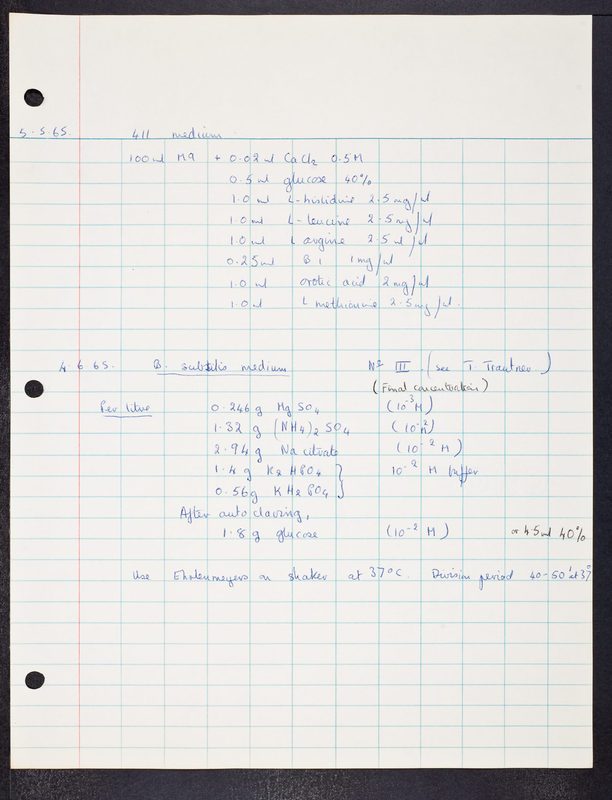 5.5.65. 411 medium
100 ml M9 + 0.02 ml CaCl2 0.5M
0.5 ml glucose 40%
1.0 ml L-histidine 2.5 mg/ml
1.0 ml L-leucine 2.5 mg/ml
1.0 ml L argine 2.5 ml/ml
0.25 ml B1 1 mg/ml
1.0 ml orotic acid 2 mg/ml
1.0 ml L methionine 2.5 mg/ml.
4.6.65. B. subtilis medium No III. (see T Trautner)
(Final concentration)
Per litre 0.246 g MgSO4 (10-3M)
1.32 g (NH4)2 SO4 (10-2M)
2.94 g Na citrate (10-2 M)
1.4 g K2HPO4 } 10-2 M buffer
0.56 g KH2PO4
After autoclaving,
1.8 g glucose (10-2 M) or 4.5 ml 40%
Use Ehrlenmeyers on shaker at 37°C. Division period 40-50' at 37°